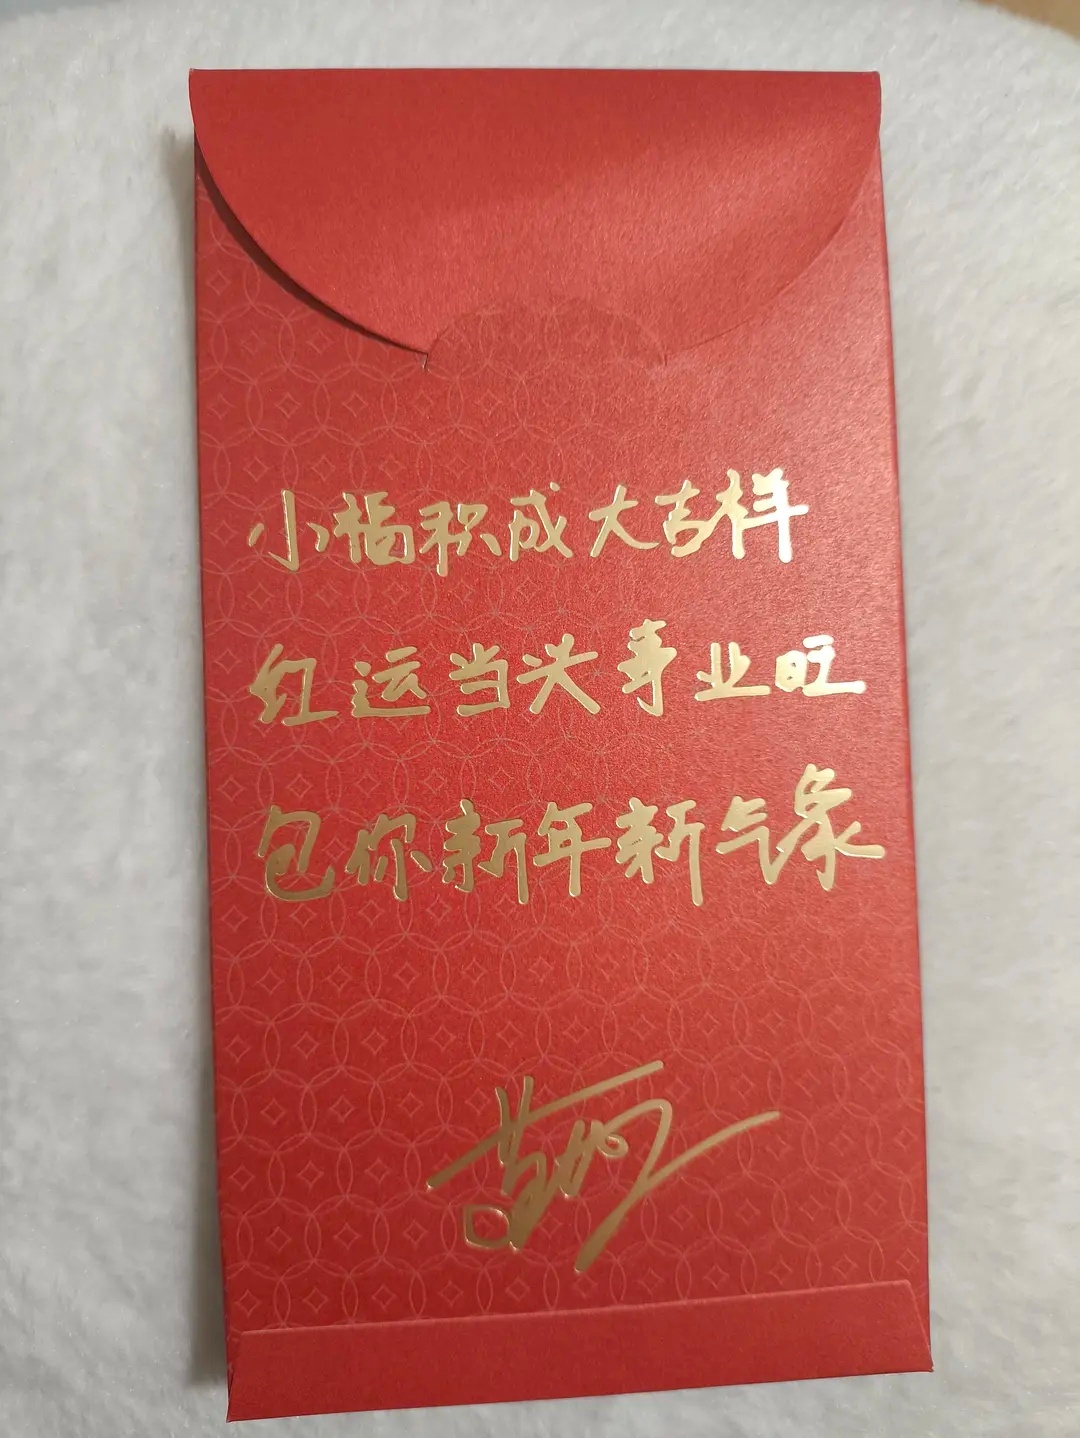 小橘积成大吉祥
红运当头事业旺
包你新年新气象